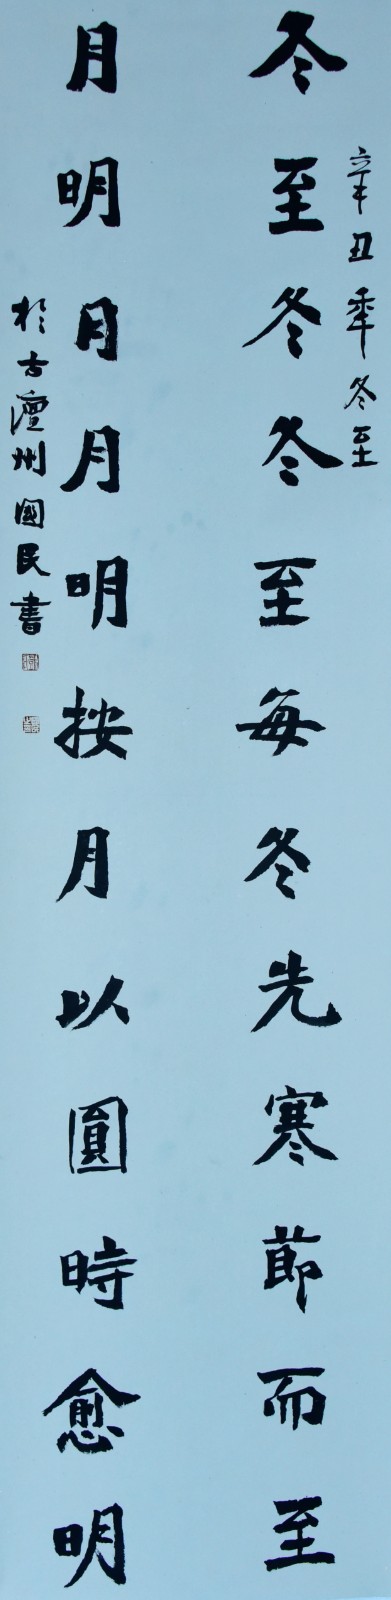 辛丑年冬至
冬至冬冬至每冬先寒節而至
月明月月明按月以圓時愈明
於古澶州國民書